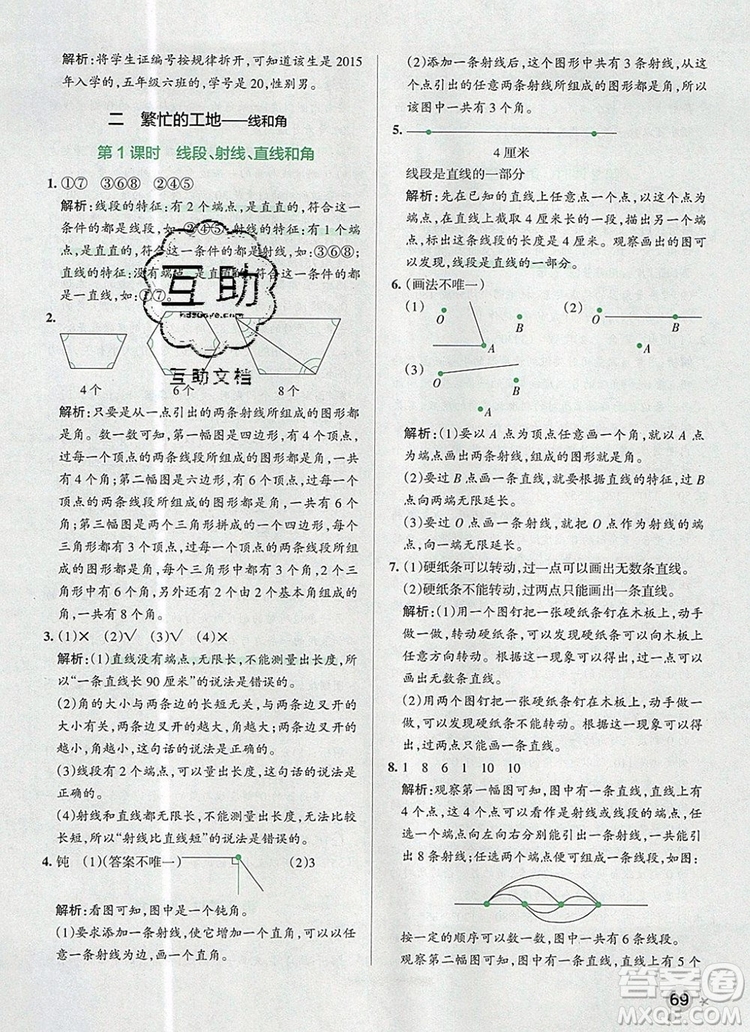 解析:将学生证编号按规律拆开,可知道该生是 2015
年入学的,五年级六班的,学号是 20,性别男。
二 繁忙的工地——线和角
第 1 课时 线段、射线、直线和角
1. ①⑦ ③⑥⑧ ②④⑤
解析:线段的特征:有 2 个端点,是直直的,符合这一
条件的都是线段,如:②④⑤;射线的特征:有 1 个端
点,是直直的,符合这一条件的都是射线,如:③⑥⑧;
直线的特征:没有端点,是直直的,符合这一条件的
都是直线,如:①⑦。
2.
4 个 6 个 8 个
解析:只要是从一点引出的两条射线所组成的图形都
是角。数一数可知,第一幅图是四边形,有 4 个顶点,
过每一个顶点的两条线段所组成的图形都是角,一
共有 4 个角;第二幅图是六边形,有 6 个顶点,过每一
个顶点的两条线段所组成的图形都是角,一共有 6 个
角;第三幅图是两个三角形拼成的一个四边形,四边
形中有 4 个顶点,过每一个顶点的两条线段所组成的
图形都是角,有 6 个,另外还有 2 个由 2 个基本角组成的
角,所以一共有 8 个角。
3. (1)✕ (2)√ (3)√ (4)✕
解析:(1)直线没有端点,无限长,不能测量出长度,所
以“一条直线长 90 厘米”的说法是错误的。
(2)角的大小与两条边的长短无关,与两条边叉开的
大小有关,两条边叉开的越大,角越大,两条边叉开的
越小,角越小,所以这句话的说法是正确的。
(3)线段有 2 个端点,可以测量出长度,所以这句话的
说法是正确的。
(4)射线和直线都无限长,不能测量出长度,无法比较
长短,所以“射线比直线短”的说法是错误的。
4. 钝 (1)(答案不唯一) (2)3
解析:看图可知,图中是一个钝角。
(1)要求添加一条射线使图中出现一个直角,可以以任
意一条射线为一边,画一个直角。
(2)添加一条射线后,这个图形中共有 3 条射线,从这
个点引出的任意两条射线所组成的图形都是角,所以
该图形中共有 3 个角。
5.
4 厘米
线段是直线的一部分
解析:先在已知的直线上任意点一个点,以这个点为端
点,在直线上向左或向右量出 4 厘米,再点上另一个端
点,这条线段的长度是 4 厘米。观察画出的图可
以发现,线段是直线的一部分。
6. (画法不唯一)
(1) O B A (2) O B
(3) O B
A
解析:(1)要以 A 点为顶点任意画一个角,就以 A 点
为端点画出两条射线,所组成的图形就是角。
(2)要过 B 点画一条直线,就是要把所画的线过 B
点向两端无限延长。
(3)要过 O 点画一条射线,就把 O 点作为射线的端
点,向一端无限延长。
7. (1)硬纸条可以转动,过一点可以画出无数条直线。
(2)硬纸条不能转动,过两点只能画出一条直线。
解析:(1)用一个图钉把一张硬纸条钉在木板上,动手
做一做,转动硬纸条可知,硬纸条可以在木板上朝
任意方向转动。根据这一现象可以发现,过一点能画
出无数条直线。
(2)用两个图钉把一张硬纸条钉在木板上,动手做一
做,发现硬纸条不能转动。根据这一现象可以发现,
过两点,只能画一条直线。
8. 1 8 6 1 10 10
解析:观察第一幅图可知,图中有一条直线,直线上有
4 个点,这 4 个点可以看作是射线的端点或线段的端
点,由端点开始向左向右分别能引出一条射线,共能
引出 8 条射线;
按一定的顺序可以数一数,图中一共有 6 条线段。
观察第二幅图可知,图中有一条直线,直线上有 5 个
互助
hdzuoye.com
互助文档
69
答案圈
MXQE.COM